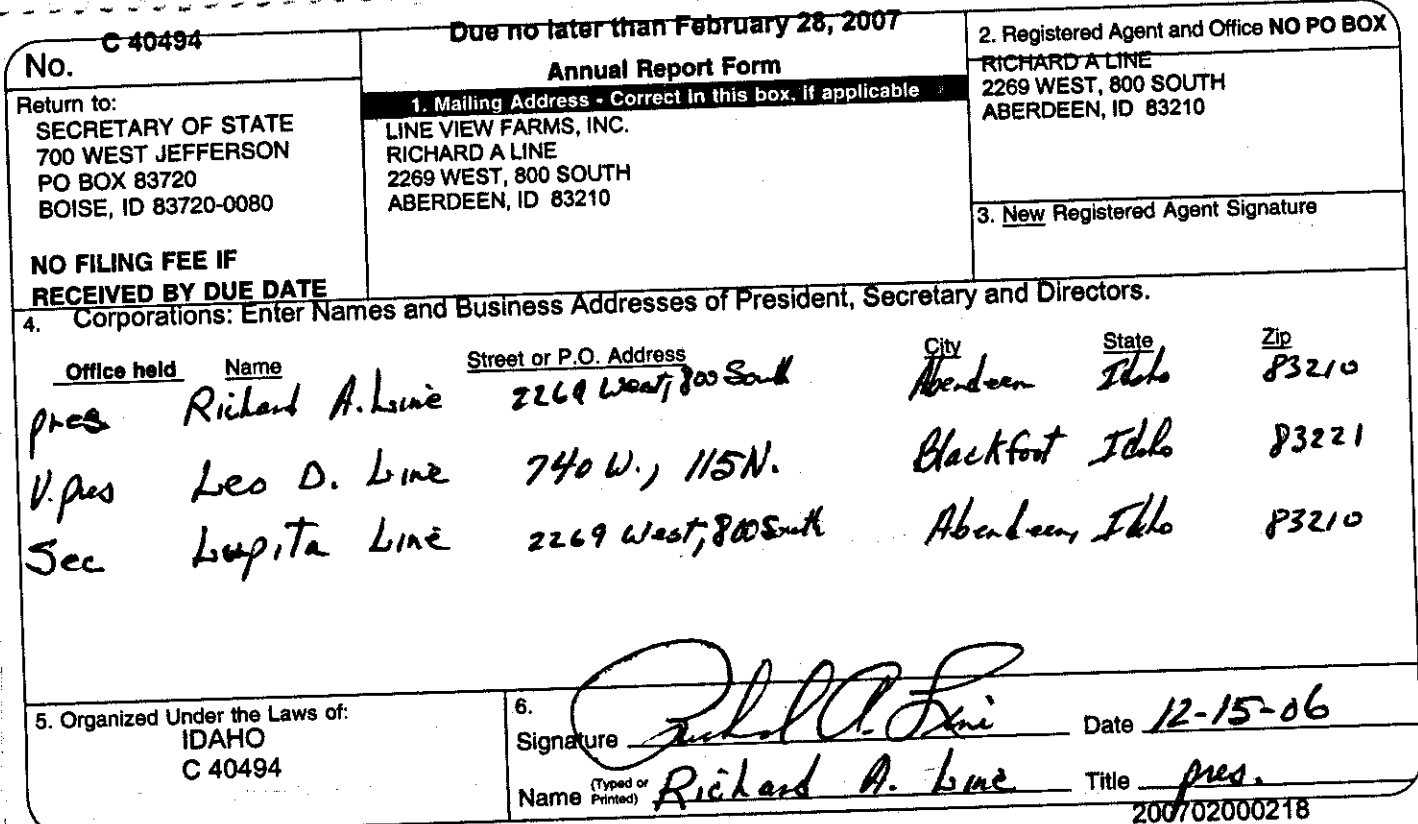 No. C 40494
Return to:
SECRETARY OF STATE
700 WEST JEFFERSON
PO BOX 83720
BOISE, ID 83720-0080
NO FILING FEE IF
RECEIVED BY DUE DATE
Due no later than February 28, 2007
Annual Report Form
1. Mailing Address - Correct in this box, if applicable
LINE VIEW FARMS, INC.
RICHARD A LINE
2269 WEST, 800 SOUTH
ABERDEEN, ID 83210
2. Registered Agent and Office NO PO BOX
RICHARD A LINE
2269 WEST, 800 SOUTH
ABERDEEN, ID 83210
3. New Registered Agent Signature
4. Corporations: Enter Names and Business Addresses of President, Secretary and Directors.
Office held Name Street or P.O. Address City State Zip
pres Richard A. Line 2269 West, 800 South Aberdeen Idaho 83210
V. pres Leo D. Line 740 W., 115N. Blackfoot Idaho 83221
Sec Lupita Line 2269 West, 800 South Aberdeen, Idaho 83210
5. Organized Under the Laws of:
IDAHO
C 40494
6.
Signature Richard A. Line Date 12-15-06
Name (Typed or Printed) Richard A. Line Title pres.
200702000218